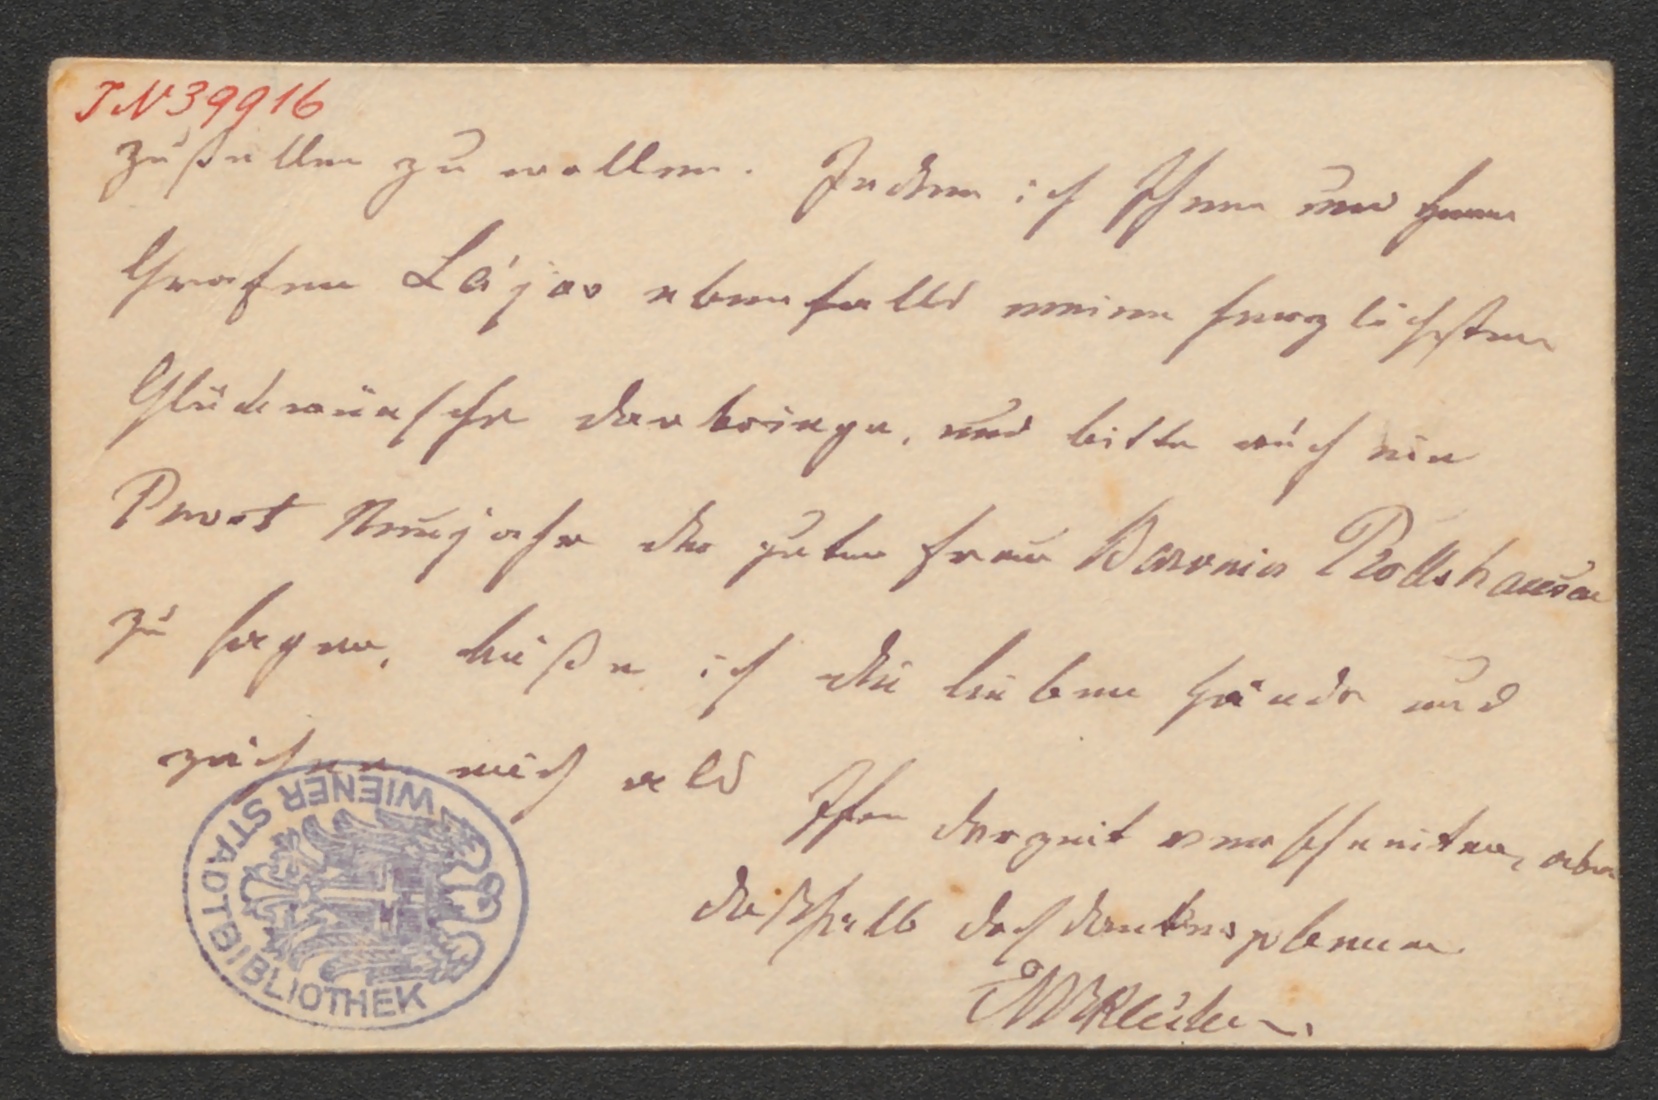 IN 39916
zustellen zu wollen. Indem ich Ihnen und Herrn
Grafen Lájos ebenfalls meine herzlichsten
Glückwünsche darbringe, und bitte auch ein
Prosit Neujahr der guten Frau Baronin
zu sagen, küße ich die lieben Hände und
zeichne mich als
Ihr derzeit verschneiter, aber
deßhalb doch dankbar
WIENER STADTBIBLIOTHEK